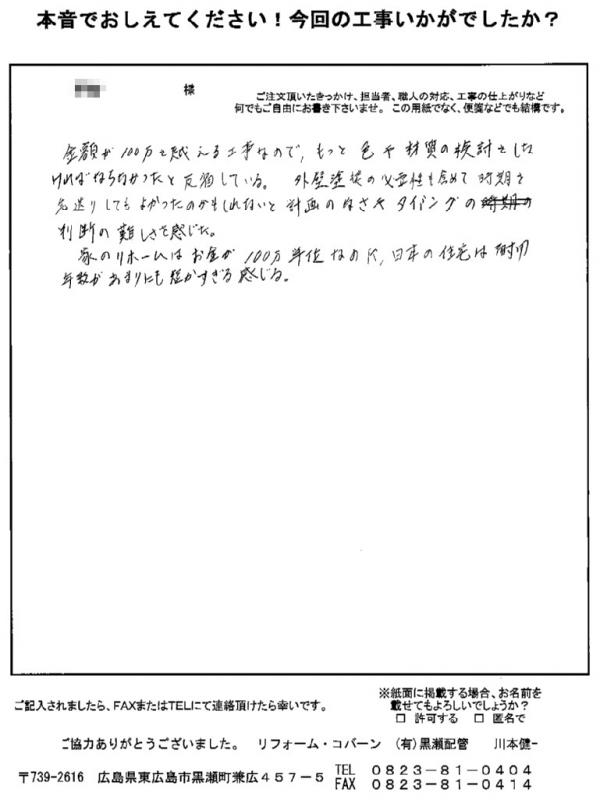 本音でおしえてください！今回の工事いかがでしたか？
様
ご注文頂いたきっかけ、担当者、職人の対応、工事の仕上がりなど
何でもご自由にお書き下さいませ。この用紙でなく、便箋などでも結構です。
金額が100万を越える工事なので、もっと色や材質の検討をした
ければならなかったと反省している。外壁塗装の必要性も含めて時期を
先送りしてもよかったのかもしれないと計画の甘さやタイミングの時期の
判断の難しさを感じた。
家のリホームはお金が100万単位なのに、日本の住宅は耐久
年数があまりにも短かすぎる感じる。
ご記入されましたら、FAXまたはTELにて連絡頂けたら幸いです。
※紙面に掲載する場合、お名前を
載せてもよろしいでしょうか？
□ 許可する □ 匿名で
ご協力ありがとうございました。 リフォーム・コバーン (有)黒瀬配管 川本健一
〒739-2616 広島県東広島市黒瀬町兼広457-5
TEL 0823-81-0404
FAX 0823-81-0414